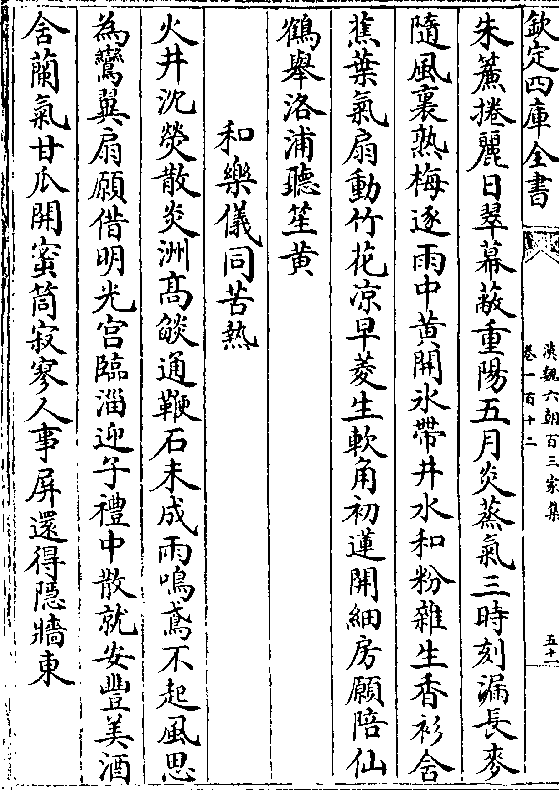 欽定四庫全書
漢魏六朝百三家集
卷一百十二
五十
朱簾捲麗日翠幕蔽重陽五月炎蒸氣三時刻漏長麥
隨風裏熟梅逐雨中黄開氷帶井水和粉雜生香衫含
蕉葉氣扇動竹花凉早菱生軟角初蓮開細房願陪仙
鶴舉洛浦聽笙黄
和樂儀同苦熱
火井沈熒散炎洲髙燄通鞭石未成雨鳴鳶不起風思
為鸞翼扇願借明光宫臨淄迎子禮中散就安豐美酒
含蘭氣甘瓜開蜜筒寂寥人事屏還得隱牆東